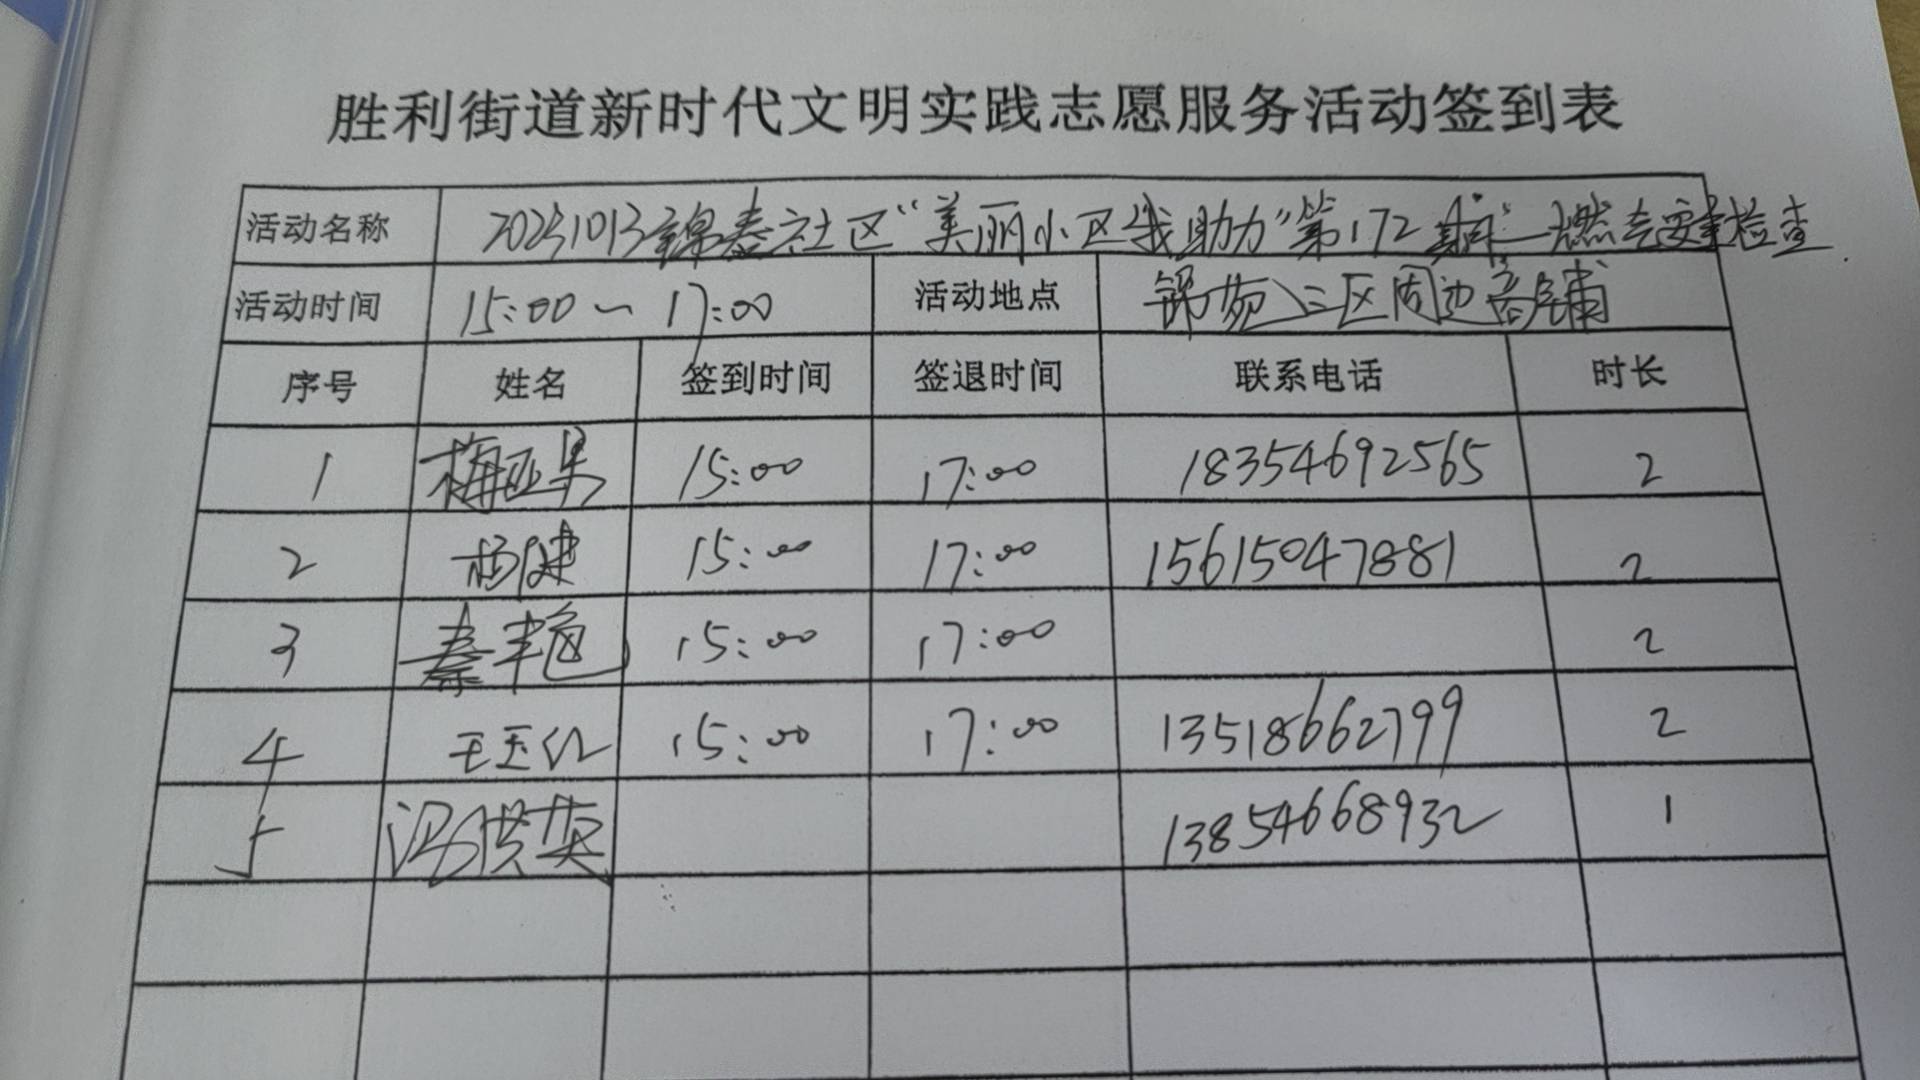 胜利街道新时代文明实践志愿服务活动签到表
活动名称 20231013锦泰社区“美丽小区我助力”第172期—燃气安全检查
活动时间 15:00~17:00 活动地点 锦苑三区周边商铺
序号 姓名 签到时间 签退时间 联系电话 时长
1 梅亚男 15:00 17:00 18354692565 2
2 杨健 15:00 17:00 15615047881 2
3 秦丰艳 15:00 17:00 2
4 王玉红 15:00 17:00 13518662799 2
5 冯洪英 13854668932 1